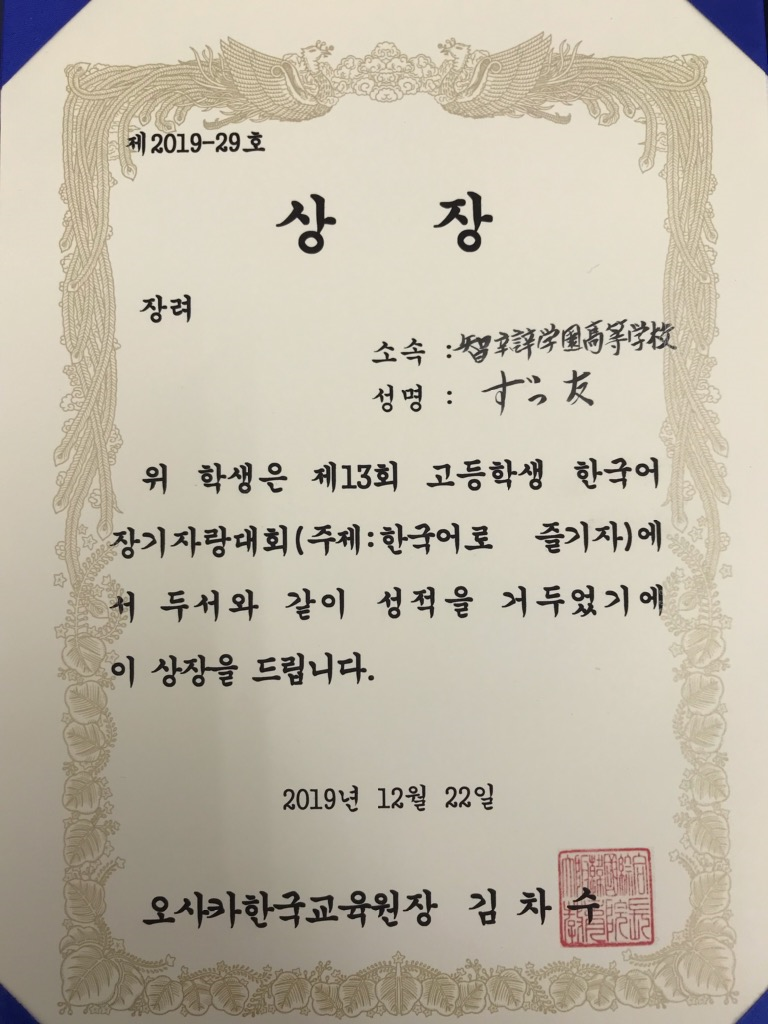 제2019-29호
상 장
장려
소속 : 智辯学園高等学校
성명 : ずっ友
위 학생은 제13회 고등학생 한국어
장기자랑대회(주제:한국어로 즐기자)에
서 두서와 같이 성적을 거두었기에
이 상장을 드립니다.
2019년 12월 22일
오사카한국교육원장 김차수